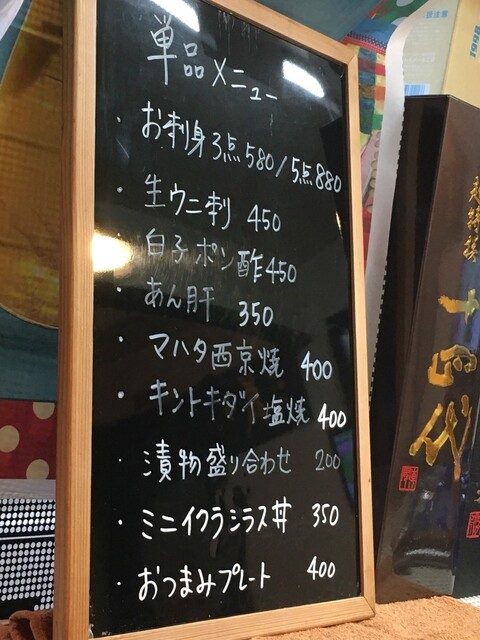 単品メニュー
・お刺身3点580/5点880
・生ウニ刺 450
・白子ポン酢450
・あん肝 350
・マハタ西京焼 400
・キントキダイ塩焼 400
・漬物盛り合わせ 200
・ミニイクラシラス丼 350
・おつまみプレート 400
十四代